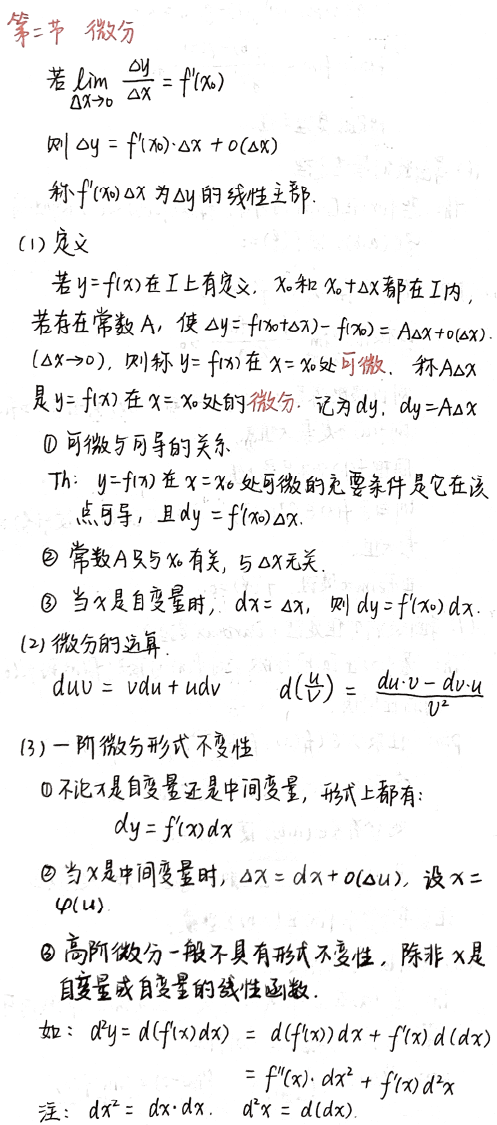 第二节 微分
若 lim Δx→0 Δy/Δx = f'(x₀)
则 Δy = f'(x₀)·Δx + o(Δx)
称 f'(x₀)Δx 为Δy的线性主部.
(1) 定义
若 y=f(x) 在 I 上有定义, x₀和 x₀+Δx 都在 I 内,
若存在常数 A, 使 Δy = f(x₀+Δx) - f(x₀) = AΔx + o(Δx).
(Δx→0), 则称 y=f(x) 在 x=x₀处可微. 称AΔx
是 y=f(x) 在 x=x₀处的微分. 记为dy, dy=AΔx
① 可微与可导的关系
Th: y=f(x) 在 x=x₀ 处可微的充要条件是它在该
点可导, 且dy = f'(x₀)Δx.
② 常数A只与x₀有关, 与Δx无关.
③ 当x是自变量时, dx=Δx, 则 dy=f'(x₀)dx.
(2) 微分的运算.
duv = vdu + udv d(u/v) = (du·v - dv·u)/v²
(3) 一阶微分形式不变性
① 不论x是自变量还是中间变量, 形式上都有:
dy = f'(x)dx
② 当x是中间变量时, Δx = dx + o(Δu), 设 x =
φ(u).
③ 高阶微分一般不具有形式不变性, 除非 x是
自变量或自变量的线性函数.
如: d²y = d(f'(x)dx) = d(f'(x))dx + f'(x)d(dx)
= f''(x)·dx² + f'(x)d²x
注: dx² = dx·dx. d²x = d(dx).